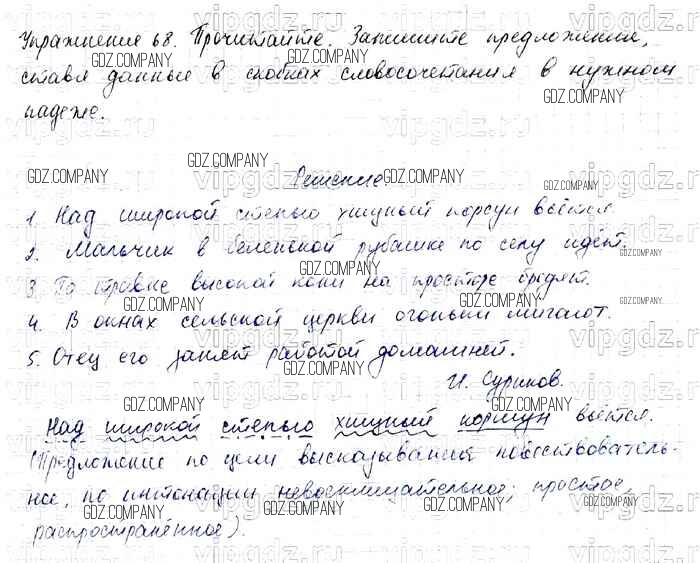 Упражнение 68. Прочитайте. Запишите предложения,
ставя данные в скобках словосочетания в нужном
падеже.
Решение.
1. Над широкой степью хищный коршун вьётся.
2. Мальчик в беленькой рубашке по селу идёт.
3. По травке высокой кони на просторе бродят.
4. В окнах сельской церкви огоньки мигают.
5. Отец его занят работой домашней.
И. Суриков.
Над широкой степью хищный коршун вьётся.
(Предложение по цели высказывания повествователь-
ное, по интонации невосклицательное, простое,
распространённое).